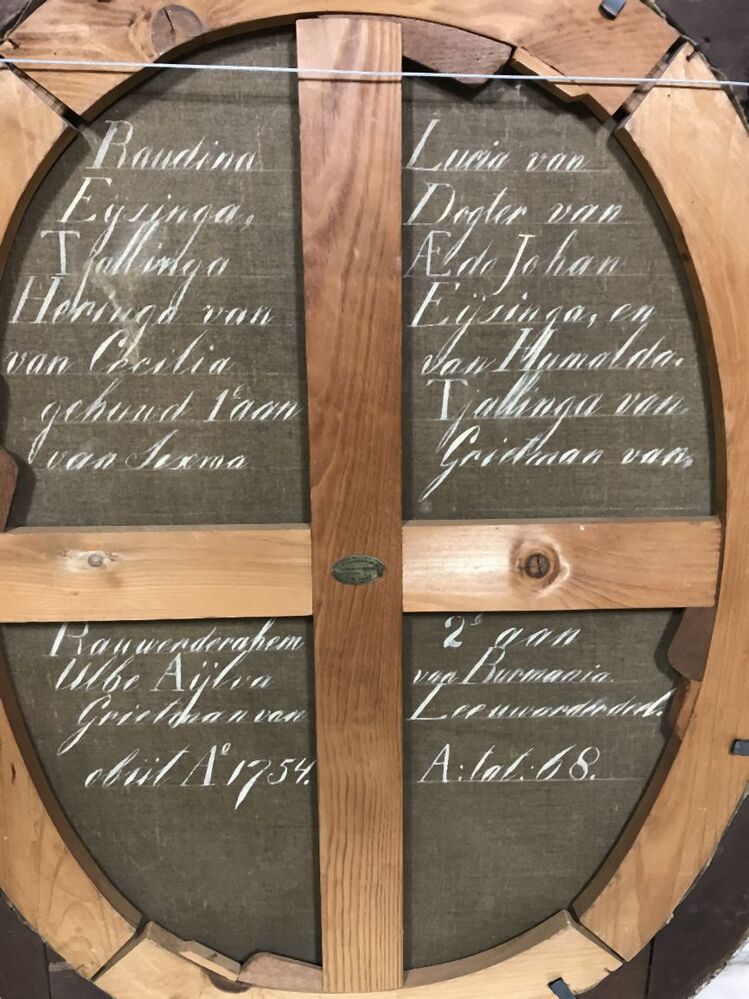 Raudina Lucia van
Eysinga, Dogter van
Tjallinga Ædo Johan
Heringa van Eÿsinga, en
van Cecilia van Humalda.
gehuud 1e aan Tjallinga van
van Sexma Grietman van,
Rauwerderahem 2e aan
Ulbe Aÿlva van Burmania.
Grietman van Leeuwarderdeel.
obiit Ao 1754. A:tat:68.